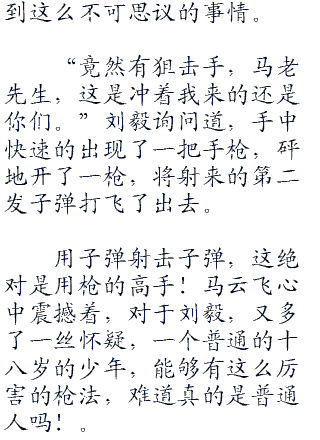 到这么不可思议的事情。
“竟然有狙击手，马老
先生，这是冲着我来的还是
你们。”刘毅询问道，手中
快速的出现了一把手枪，砰
地开了一枪，将射来的第二
发子弹打飞了出去。
用子弹射击子弹，这绝
对是用枪的高手！马云飞心
中震撼着，对于刘毅，又多
了一丝怀疑，一个普通的十
八岁的少年，能够有这么厉
害的枪法，难道真的是普通
人吗！。